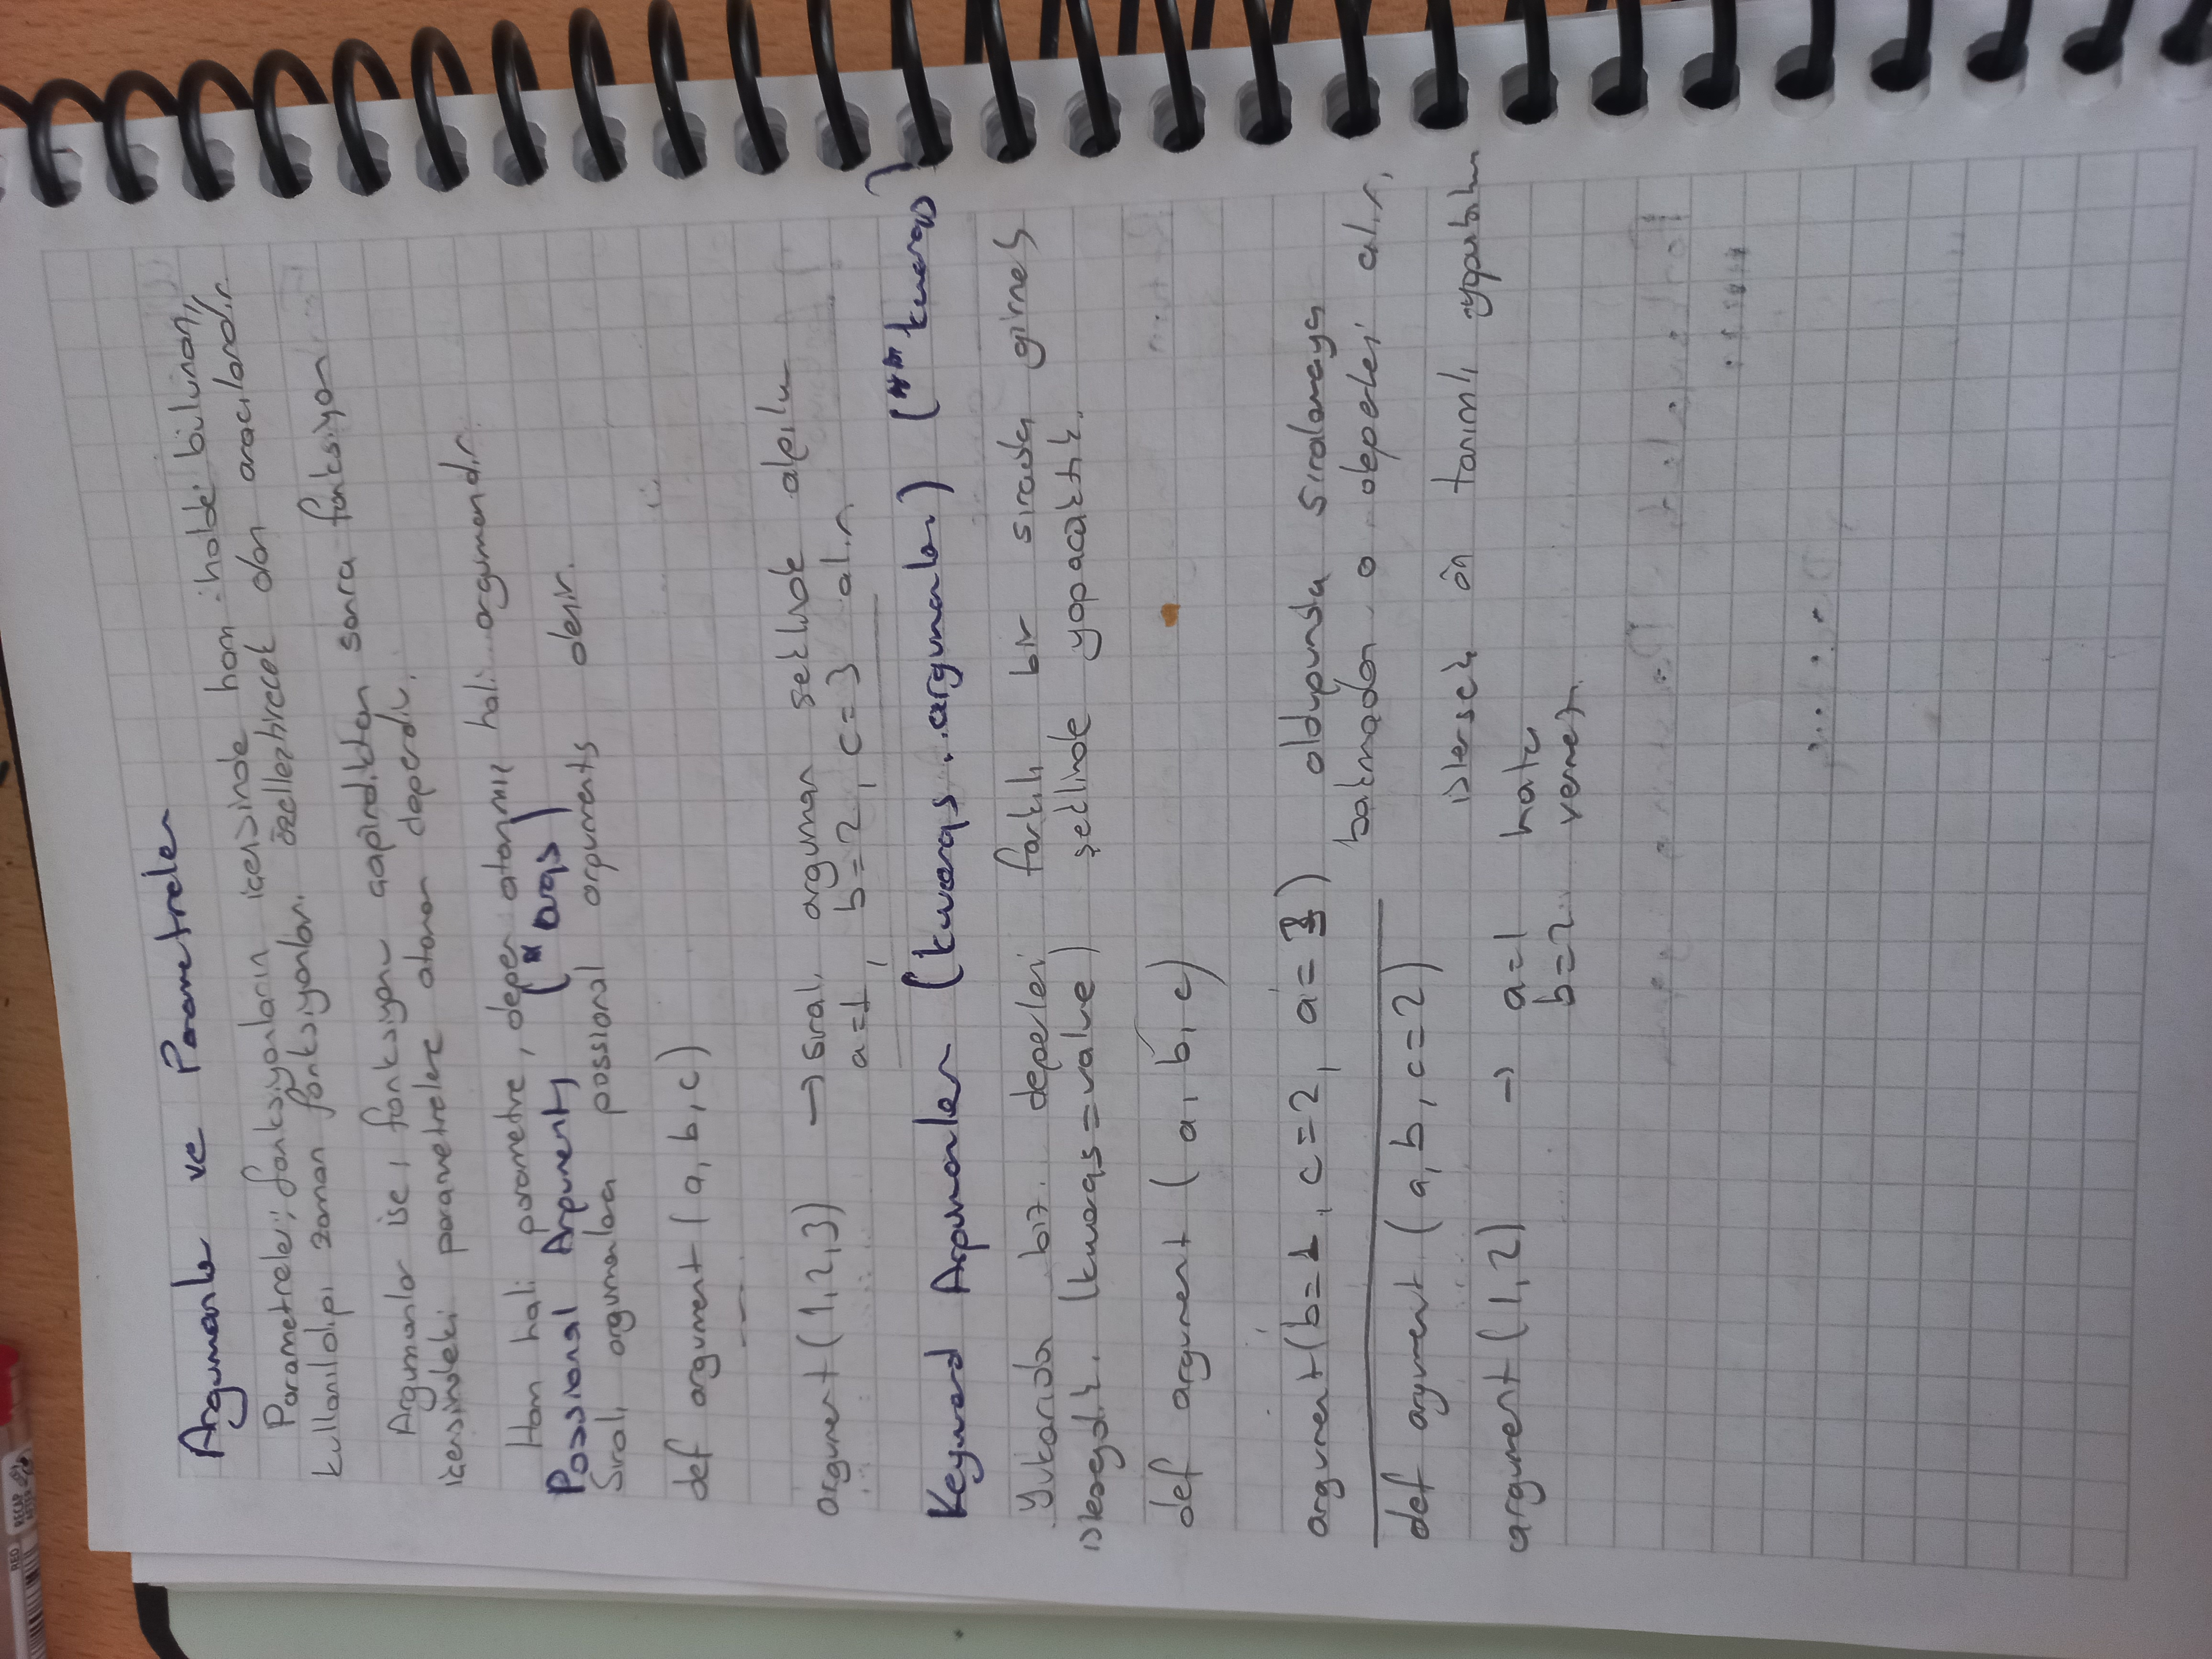 RED
RECAP AFTER
Argumanlar ve Parametreler
Parametreler; fonksiyonların içersinde ham halde bulunan,
kullanıldığı zaman fonksiyonları özelleştirecek olan aracılardır.
Argumanlar ise, fonksiyonu çağırdıktan sonra fonksiyon
içersindeki parametrelere atanan değerdir.
Ham hali parametre, değer atanmış hali argumandır.
Possional Arguments (*args)
Sıralı argumanlara possional arguments denir.
def argument (a, b, c)
argument (1, 2, 3) → sıralı arguman şeklinde algılar
a=1, b=2, c=3 alır
Keyword Argumanlar (kwargs argumanları) (**kwargs)
Yukarıda biz değerleri farklı bir sırada girmek
isteseydik. (kwargs=value) şeklinde yapacaktık.
def argument (a, b, c)
argument (b=1, c=2, a=3) olduğunda sıralamaya
bakmadan o değerleri alır.
def argument (a, b, c=2)
istersek ön tanımlı
argument (1, 2) → a=1 hata
b=2 vermez